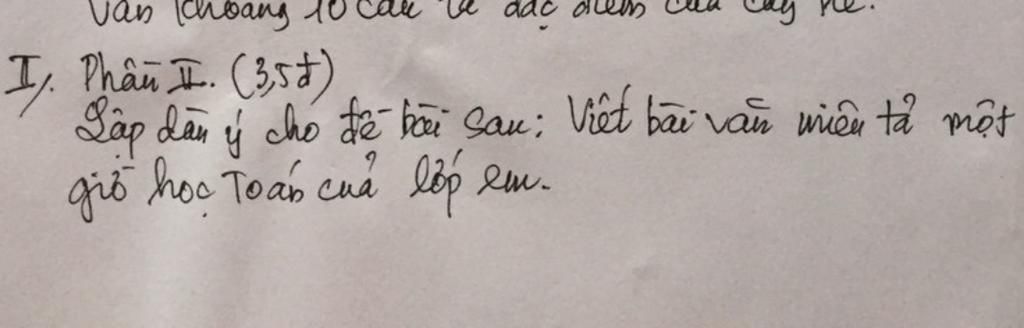 văn khoảng 10 câu tả đặc điểm của cây
II/. Phần II. (3,5đ)
Lập dàn ý cho đề bài sau: Viết bài văn miêu tả một
giờ học Toán của lớp em.